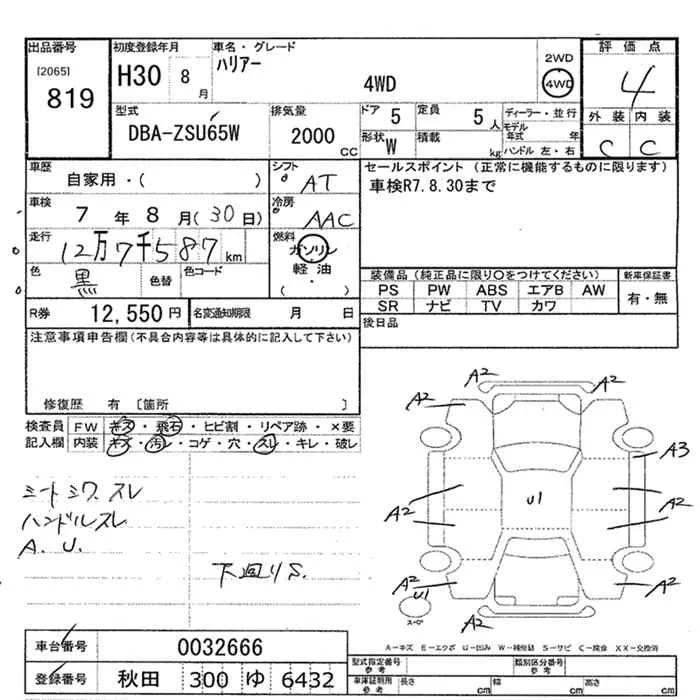 出品番号
[2065]
819
初度登録年月
H30 8
月
車名・グレード
ハリアー
4WD
2WD
4WD
評価点
4
外装 内装
C C
型式
DBA-ZSU65W
排気量
2000
CC
ドア 5
定員 5
人
形状 W
積載
kg
ディーラー・並行
モデル
年式 年
ハンドル 左・右
車歴
自家用・( )
シフト
AT
車検
7 年 8 月 (30日)
冷房
AAC
走行
12万7千587 km
燃料
ガソリン
軽油
( )
色
黒
色替
色コード
セールスポイント (正常に機能するものに限ります)
車検R7.8.30まで
装備品 (純正品に限り○をつけてください)
PS PW ABS エアB AW
SR ナビ TV カワ
新車保証書
有・無
後日品
R券 12,550 円
名変通知期限 月 日
注意事項申告欄(不具合内容等は具体的に記入して下さい)
修復歴 有 〔箇所 〕
検査員
記入欄
FW キズ・飛石・ヒビ割・リペア跡・×要
内装 キズ・汚レ・コゲ・穴・スレ・キレ・破レ
シートシワ.スレ
ハンドルスレ
A. U.
下廻りS.
A2
A2
A2
A3
A2
A2
A2
U1
A2
U1
A2
A2
スペア
A-キズ E-エクボ U-凹み W-補修跡 S-サビ C-腐食 XX-交換済
車台番号
0032666
登録番号
秋田 300 ゆ 6432
型式指定番号
参考
類別区分番号
参考
車庫証明用
参考
長さ cm
幅 cm
高さ cm